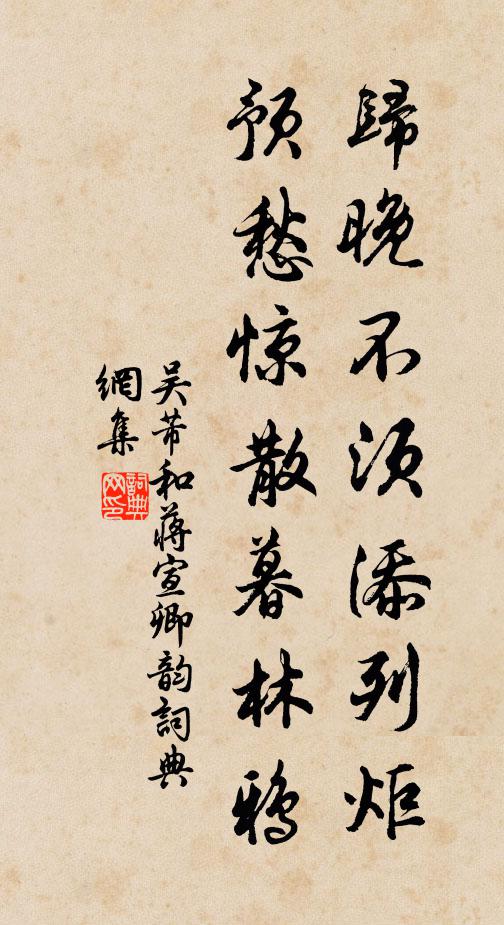 歸晚不須添列炬
預愁惊散暮林鴉
吴芾和蔣宣卿韵詞典
網集
詞典網印